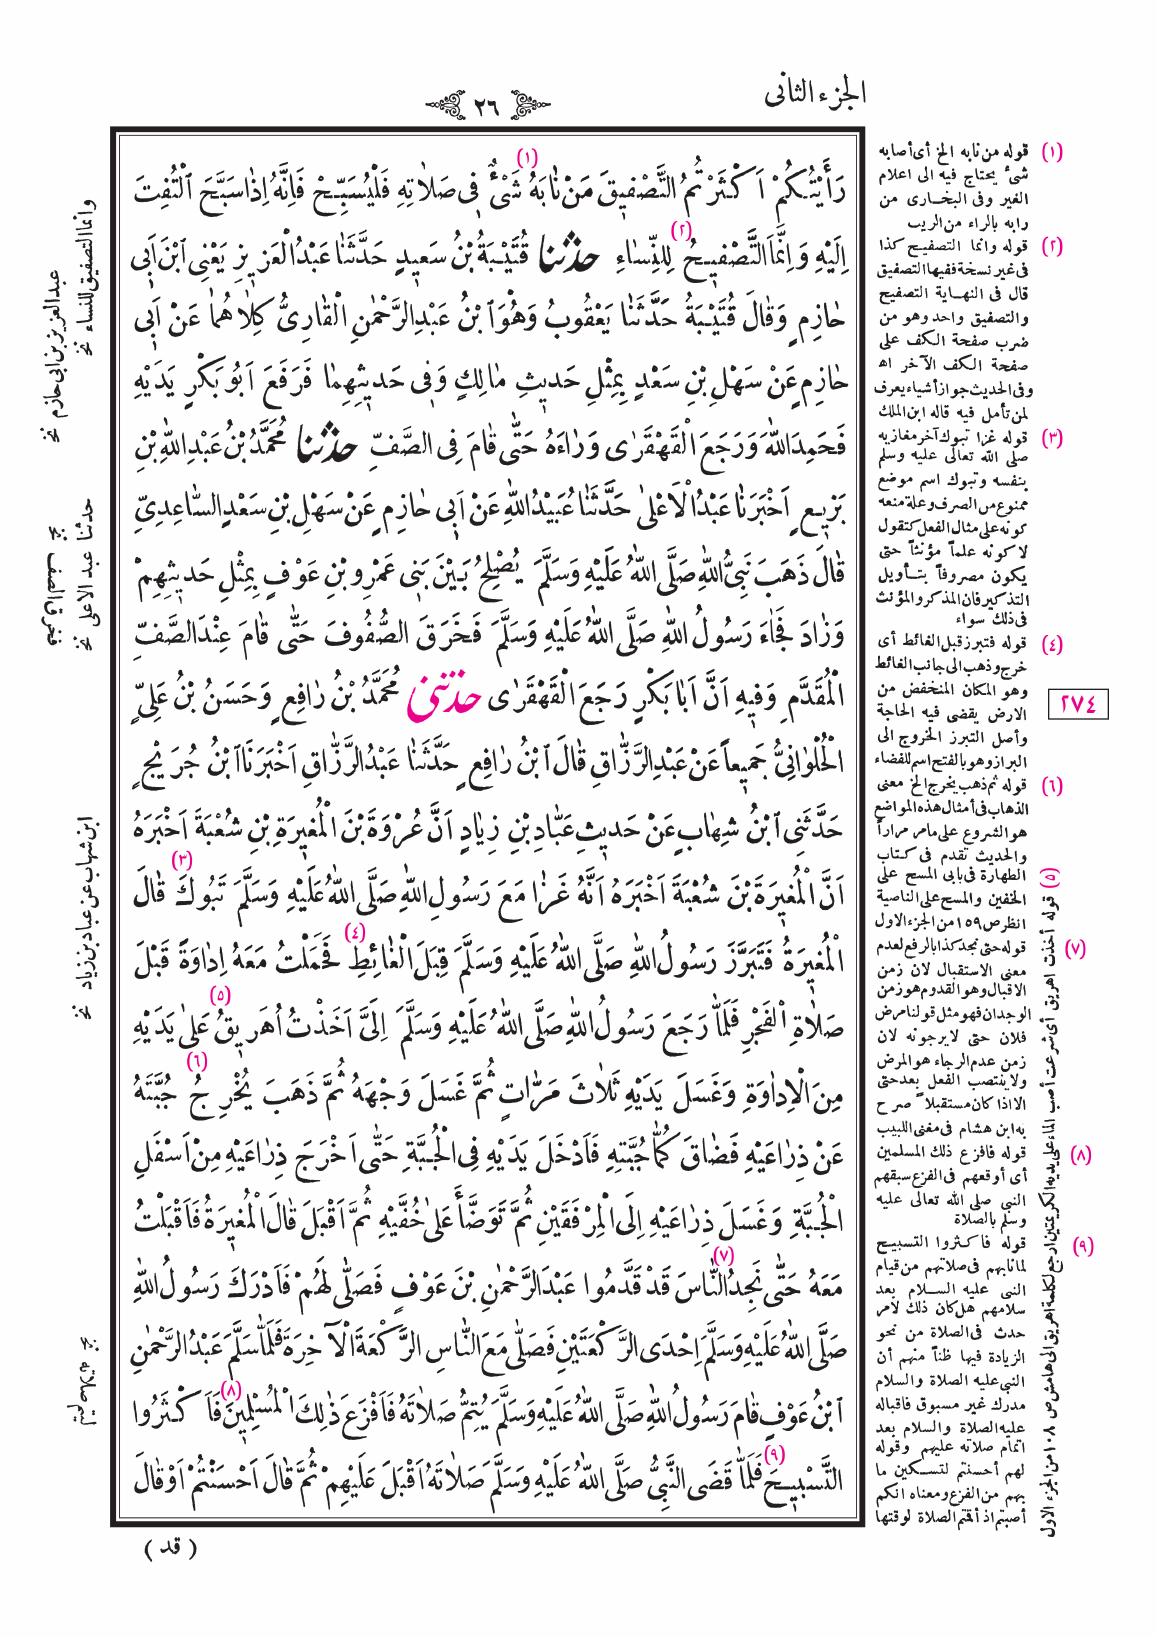 الجزء الثانى
٢٦
رَأَيْتُكُمْ اَكْثَرْتُمُ التَّصْفِيقَ مَنْ نَابَهُ (١) شَىْءٌ فِى صَلَاتِهِ فَلْيُسَبِّحْ فَاِنَّهُ اِذَا سَبَّحَ الْتُفِتَ
اِلَيْهِ وَاِنَّمَا التَّصْفِيحُ (٢) لِلنِّسَاءِ حدثنا قُتَيْبَةُ بْنُ سَعِيدٍ حَدَّثَنَا عَبْدُ الْعَزِيزِ يَعْنِى ابْنَ اَبِى
حَازِمٍ وَقَالَ قُتَيْبَةُ حَدَّثَنَا يَعْقُوبُ وَهُوَ ابْنُ عَبْدِ الرَّحْمٰنِ الْقَارِىُّ كِلَاهُمَا عَنْ اَبِى
حَازِمٍ عَنْ سَهْلِ بْنِ سَعْدٍ بِمِثْلِ حَدِيثِ مَالِكٍ وَفِى حَدِيثِهِمَا فَرَفَعَ اَبُو بَكْرٍ يَدَيْهِ
فَحَمِدَ اللّٰهَ وَرَجَعَ الْقَهْقَرٰى وَرَاءَهُ حَتّٰى قَامَ فِى الصَّفِّ حدثنا مُحَمَّدُ بْنُ عَبْدِ اللّٰهِ بْنِ
بَزِيعٍ اَخْبَرَنَا عَبْدُ الْاَعْلٰى حَدَّثَنَا عُبَيْدُ اللّٰهِ عَنْ اَبِى حَازِمٍ عَنْ سَهْلِ بْنِ سَعْدٍ السَّاعِدِىِّ
قَالَ ذَهَبَ نَبِىُّ اللّٰهِ صَلَّى اللّٰهُ عَلَيْهِ وَسَلَّمَ يُصْلِحُ بَيْنَ بَنِى عَمْرِو بْنِ عَوْفٍ بِمِثْلِ حَدِيثِهِمْ
وَزَادَ فَجَاءَ رَسُولُ اللّٰهِ صَلَّى اللّٰهُ عَلَيْهِ وَسَلَّمَ فَخَرَقَ الصُّفُوفَ حَتّٰى قَامَ عِنْدَ الصَّفِّ
الْمُقَدَّمِ وَفِيهِ اَنَّ اَبَا بَكْرٍ رَجَعَ الْقَهْقَرٰى حدثنى مُحَمَّدُ بْنُ رَافِعٍ وَحَسَنُ بْنُ عَلِىٍّ
الْحُلْوَانِىُّ جَمِيعاً عَنْ عَبْدِ الرَّزَّاقِ قَالَ ابْنُ رَافِعٍ حَدَّثَنَا عَبْدُ الرَّزَّاقِ اَخْبَرَنَا ابْنُ جُرَيْجٍ
حَدَّثَنِى ابْنُ شِهَابٍ عَنْ حَدِيثِ عَبَّادِ بْنِ زِيَادٍ اَنَّ عُرْوَةَ بْنَ الْمُغِيرَةِ بْنِ شُعْبَةَ اَخْبَرَهُ
اَنَّ الْمُغِيرَةَ بْنَ شُعْبَةَ اَخْبَرَهُ اَنَّهُ غَزَا مَعَ رَسُولِ اللّٰهِ صَلَّى اللّٰهُ عَلَيْهِ وَسَلَّمَ تَبُوكَ (٣) قَالَ
الْمُغِيرَةُ فَتَبَرَّزَ رَسُولُ اللّٰهِ صَلَّى اللّٰهُ عَلَيْهِ وَسَلَّمَ قِبَلَ الْغَائِطِ (٤) فَحَمَلْتُ مَعَهُ اِدَاوَةً قَبْلَ
صَلَاةِ الْفَجْرِ فَلَمَّا رَجَعَ رَسُولُ اللّٰهِ صَلَّى اللّٰهُ عَلَيْهِ وَسَلَّمَ اِلَىَّ اَخَذْتُ اُهَرِيقُ (٥) عَلٰى يَدَيْهِ
مِنَ الْاِدَاوَةِ وَغَسَلَ يَدَيْهِ ثَلَاثَ مَرَّاتٍ ثُمَّ غَسَلَ وَجْهَهُ ثُمَّ ذَهَبَ يُخْرِجُ (٦) جُبَّتَهُ
عَنْ ذِرَاعَيْهِ فَضَاقَ كُمَّا جُبَّتِهِ فَاَدْخَلَ يَدَيْهِ فِى الْجُبَّةِ حَتّٰى اَخْرَجَ ذِرَاعَيْهِ مِنْ اَسْفَلِ
الْجُبَّةِ وَغَسَلَ ذِرَاعَيْهِ اِلَى الْمِرْفَقَيْنِ ثُمَّ تَوَضَّأَ عَلٰى خُفَّيْهِ ثُمَّ اَقْبَلَ قَالَ الْمُغِيرَةُ فَاَقْبَلْتُ
مَعَهُ حَتّٰى نَجِدُ (٧) النَّاسَ قَدْ قَدَّمُوا عَبْدَ الرَّحْمٰنِ بْنَ عَوْفٍ فَصَلَّى لَهُمْ فَاَدْرَكَ رَسُولُ اللّٰهِ
صَلَّى اللّٰهُ عَلَيْهِ وَسَلَّمَ اِحْدَى الرَّكْعَتَيْنِ فَصَلَّى مَعَ النَّاسِ الرَّكْعَةَ الْآخِرَةَ فَلَمَّا سَلَّمَ عَبْدُ الرَّحْمٰنِ
ابْنُ عَوْفٍ قَامَ رَسُولُ اللّٰهِ صَلَّى اللّٰهُ عَلَيْهِ وَسَلَّمَ يُتِمُّ صَلَاتَهُ فَاَفْزَعَ ذٰلِكَ الْمُسْلِمِينَ (٨) فَاَكْثَرُوا
التَّسْبِيحَ (٩) فَلَمَّا قَضَى النَّبِىُّ صَلَّى اللّٰهُ عَلَيْهِ وَسَلَّمَ صَلَاتَهُ اَقْبَلَ عَلَيْهِمْ ثُمَّ قَالَ اَحْسَنْتُمْ اَوْ قَالَ
( قد )
(١) قوله من نابه الخ أى أصابه
شئ يحتاج فيه الى اعلام
الغير وفى البخارى من
رابه بالراء من الريب
(٢) قوله وانما التصفيح كذا
فى غير نسخة ففيها التصفيق
قال فى النهاية التصفيح
والتصفيق واحد وهو من
ضرب صفحة الكف على
صفحة الكف الآخر اه
وفى الحديث جواز أشياء يعرف
لمن تأمل فيه قاله ابن الملك
(٣) قوله غزا تبوك آخر مغازيه
صلى الله تعالى عليه وسلم
بنفسه وتبوك اسم موضع
ممنوع من الصرف وعلة منعه
كونه على مثال الفعل كتقول
لا كونه علماً مؤنثاً حتى
يكون مصروفاً بتأويل
التذكير فان المذكر والمؤنث
فى ذلك سواء
(٤) قوله فتبرز قبل الغائط أى
خرج وذهب الى جانب الغائط
وهو المكان المنخفض من
الارض يقضى فيه الحاجة
وأصل التبرز الخروج الى
البراز وهو بالفتح اسم للفضاء
(٦) قوله ثم ذهب يخرج الخ معنى
الذهاب فى أمثال هذه المواضع
هو الشروع على ما مر مراراً
والحديث تقدم فى كتاب
الطهارة فى بابى المسح على
الخفين والمسح على الناصية
انظر ص ١٥٩ من الجزء الاول
(٧) قوله حتى نجد كذا بالرفع لعدم
معنى الاستقبال لان زمن
الاقبال وهو القدوم هو زمن
الوجدان فهو مثل قولنا مرض
فلان حتى لا يرجونه لان
زمن عدم الرجاء هو المرض
ولا ينتصب الفعل بعد حتى
الا اذا كان مستقبلاً صرح
به ابن هشام فى مغنى اللبيب
(٨) قوله فافزع ذلك المسلمين
أى أوقعهم فى الفزع سبقهم
النبى صلى الله تعالى عليه
وسلم بالصلاة
(٩) قوله فاكثروا التسبيح
لما نابهم فى صلاتهم من قيام
النبى عليه السلام بعد
سلامهم هل كان ذلك لامر
حدث فى الصلاة من نحو
الزيادة فيها ظناً منهم أن
النبى عليه الصلاة والسلام
مدرك غير مسبوق فاقباله
عليه الصلاة والسلام بعد
اتمام صلاته عليهم وقوله
لهم أحسنتم لتسكين ما
بهم من الفزع ومعناه انكم
أصبتم اذ أقمتم الصلاة لوقتها
(٥) قوله أخذت اهريق أى شرعت أصب الماء على يديه الكريمتين ارجع لكلمة اهريق الى هامش ص ١٠٨ من الجزء الاول
٢٧٤
وانما التصفيق للنساء نخ
عبد العزيز بن ابى حازم نخ
حدثنا عبد الاعلى نخ
فخرق الصف نخ
ابن شهاب عن عباد بن زياد نخ